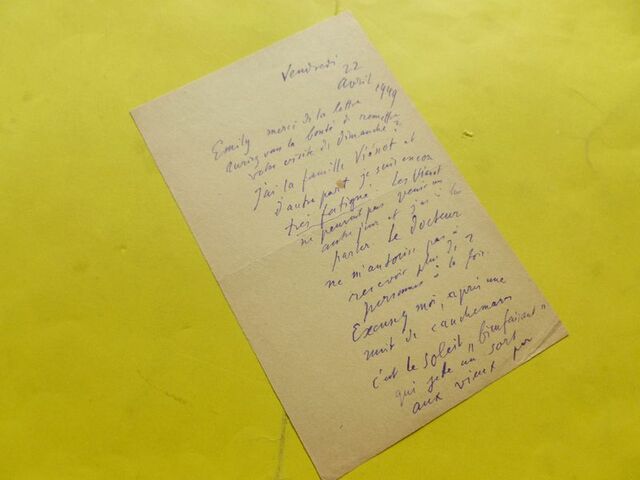 Vendredi
22
Avril 1949
Emily merci de la lettre
Auriez vous la bonté de remettre
votre visite de Dimanche ?
J'ai la famille Viénot et
d'autre part je suis encore
très fatigué. Les Viénot
ne peuvent pas venir un
autre jour et j'ai à leur
parler. Le Docteur
ne m'autorise pas à
recevoir plus de 2
personnes à la fois.
Excusez moi, après une
nuit de cauchemars
c'est le soleil "bienfaisant"
qui jette un sort
aux vieux